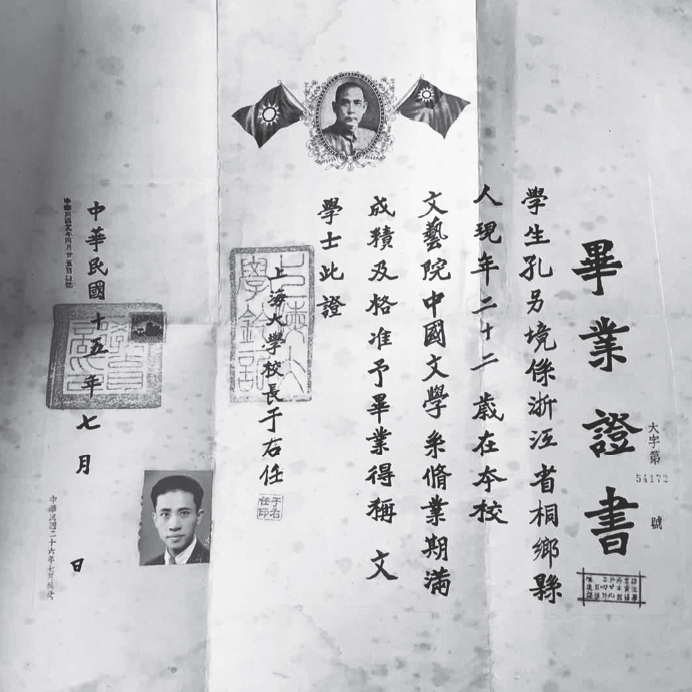 畢業證書
大字第
54172
號
學生孔另境係浙江省桐鄉縣
人現年二十二歲在本校
文藝院中國文學系脩業期滿
成績及格准予畢業得稱文
學士此證
上海大學校長于右任
于右任印
中華民國十五年七月 日